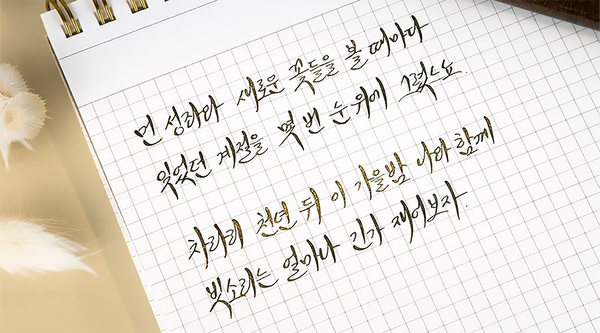 먼 성좌와 새로운 꽃들을 볼 때마다
잊었던 계절을 몇 번 눈 위에 그렸느뇨
차라리 천년 뒤 이 가을밤 나와 함께
빗소리는 얼마나 긴가 재어보자